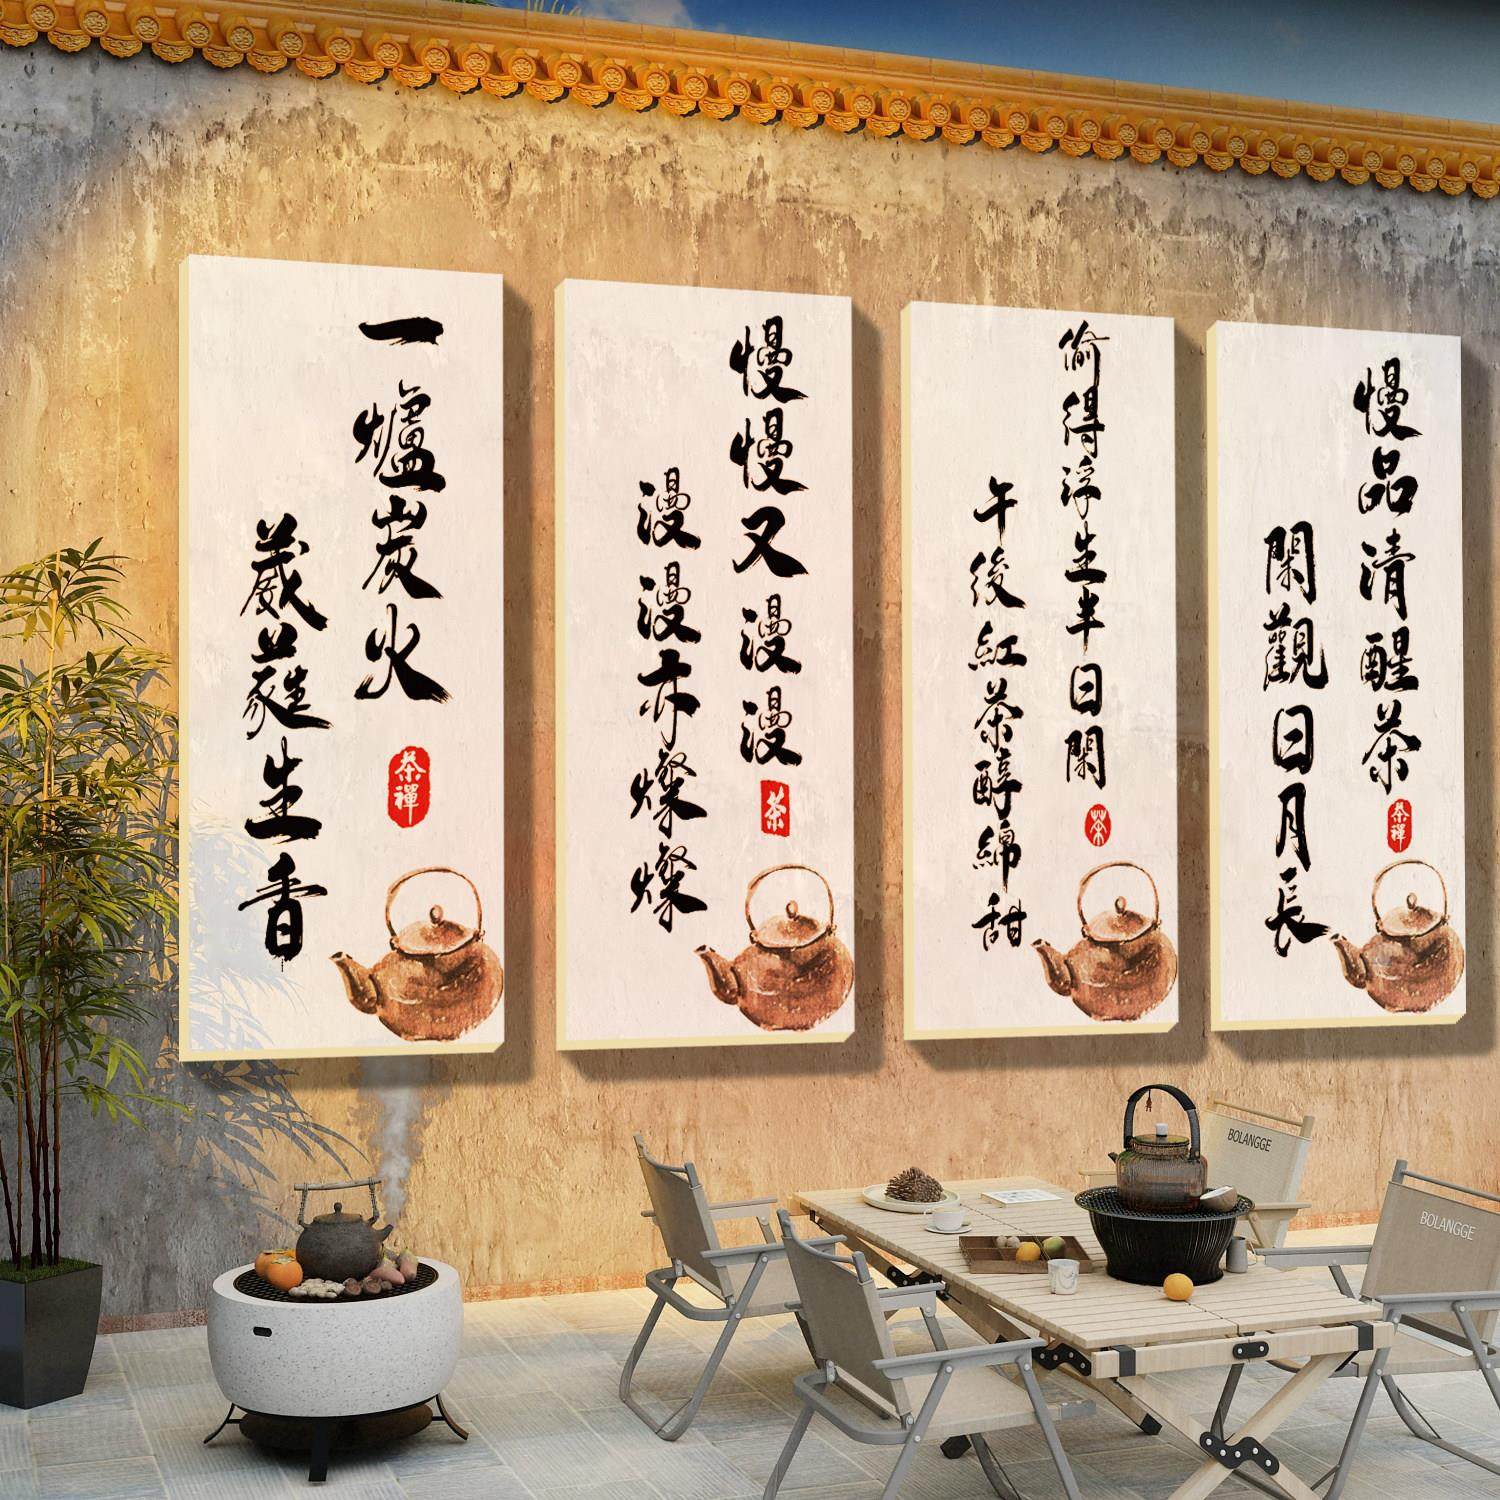 一爐炭火
葳蕤生香
茶禪
慢慢又漫漫
漫漫亦燦燦
茶
偷得浮生半日閑
午後紅茶醇綿甜
茶
慢品清醒茶
閑觀日月長
茶禪
BOLANGGE
BOLANGGE